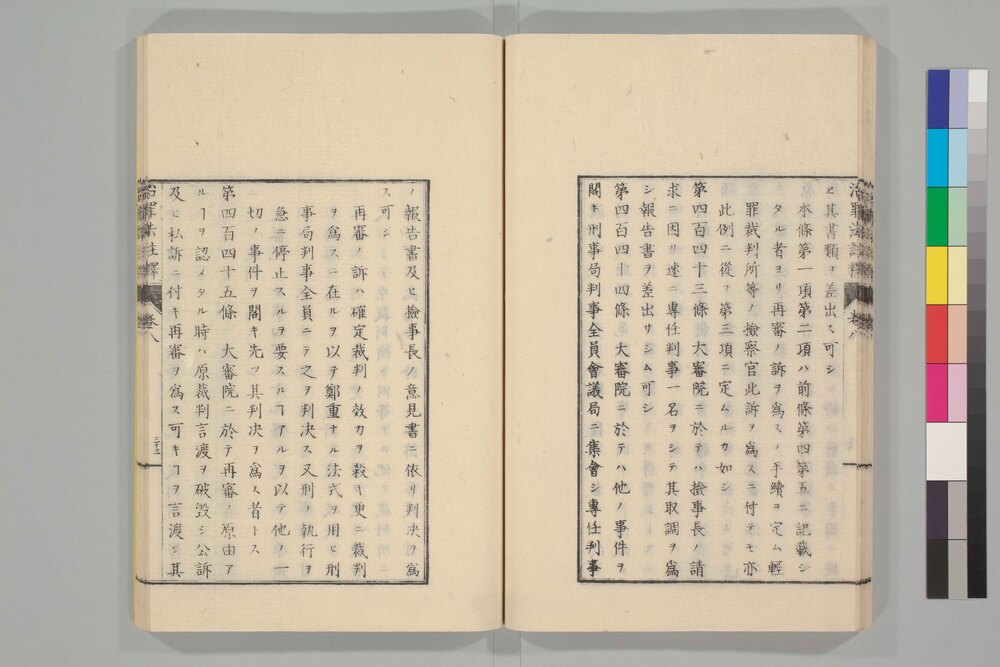 ヒ其書類ヲ差出ス可シ
本條第一項第二項ハ前條第四第五ニ記載シ
タル者ヨリ再審ノ訴ヲ爲スノ手續ヲ定ム輕
罪裁判所等ノ撿察官此訴ヲ爲スニ付テモ亦
此例ニ從フ第三項ニ定ムルカ如シ
第四百四十三條 大審院ニ於テハ撿事長ノ請
求ニ因リ速ニ專任判事一名ヲシテ其取調ヲ爲
シ報告書ヲ差出サシム可シ
第四百四十四條 大審院ニ於テハ他ノ事件ヲ
閣キ刑事局判事全員會議局ニ集會シ專任判事
治罪法註釋 卷八
ノ報告書及ヒ撿事長ノ意見書ニ依リ判决ヲ爲
ス可シ
再審ノ訴ハ確定裁判ノ效力ヲ殺キ更ニ裁判
ヲ爲スニ在ルヲ以テ鄭重ナル法式ヲ用ヒ刑
事局判事全員ニテ之ヲ判决ス又刑ノ執行ヲ
急ニ停止スルヲ要スルヿアルヲ以テ他ノ一
切ノ事件ヲ閣キ先ツ其判决ヲ爲ス者トス
第四百四十五條 大審院ニ於テ再審ノ原由ア
ルヿヲ認メタル時ハ原裁判言渡ヲ破毀シ公訴
及ヒ私訴ニ付キ再審ヲ爲ス可キヿヲ言渡シ其
治罪法註釋 卷八 三十三